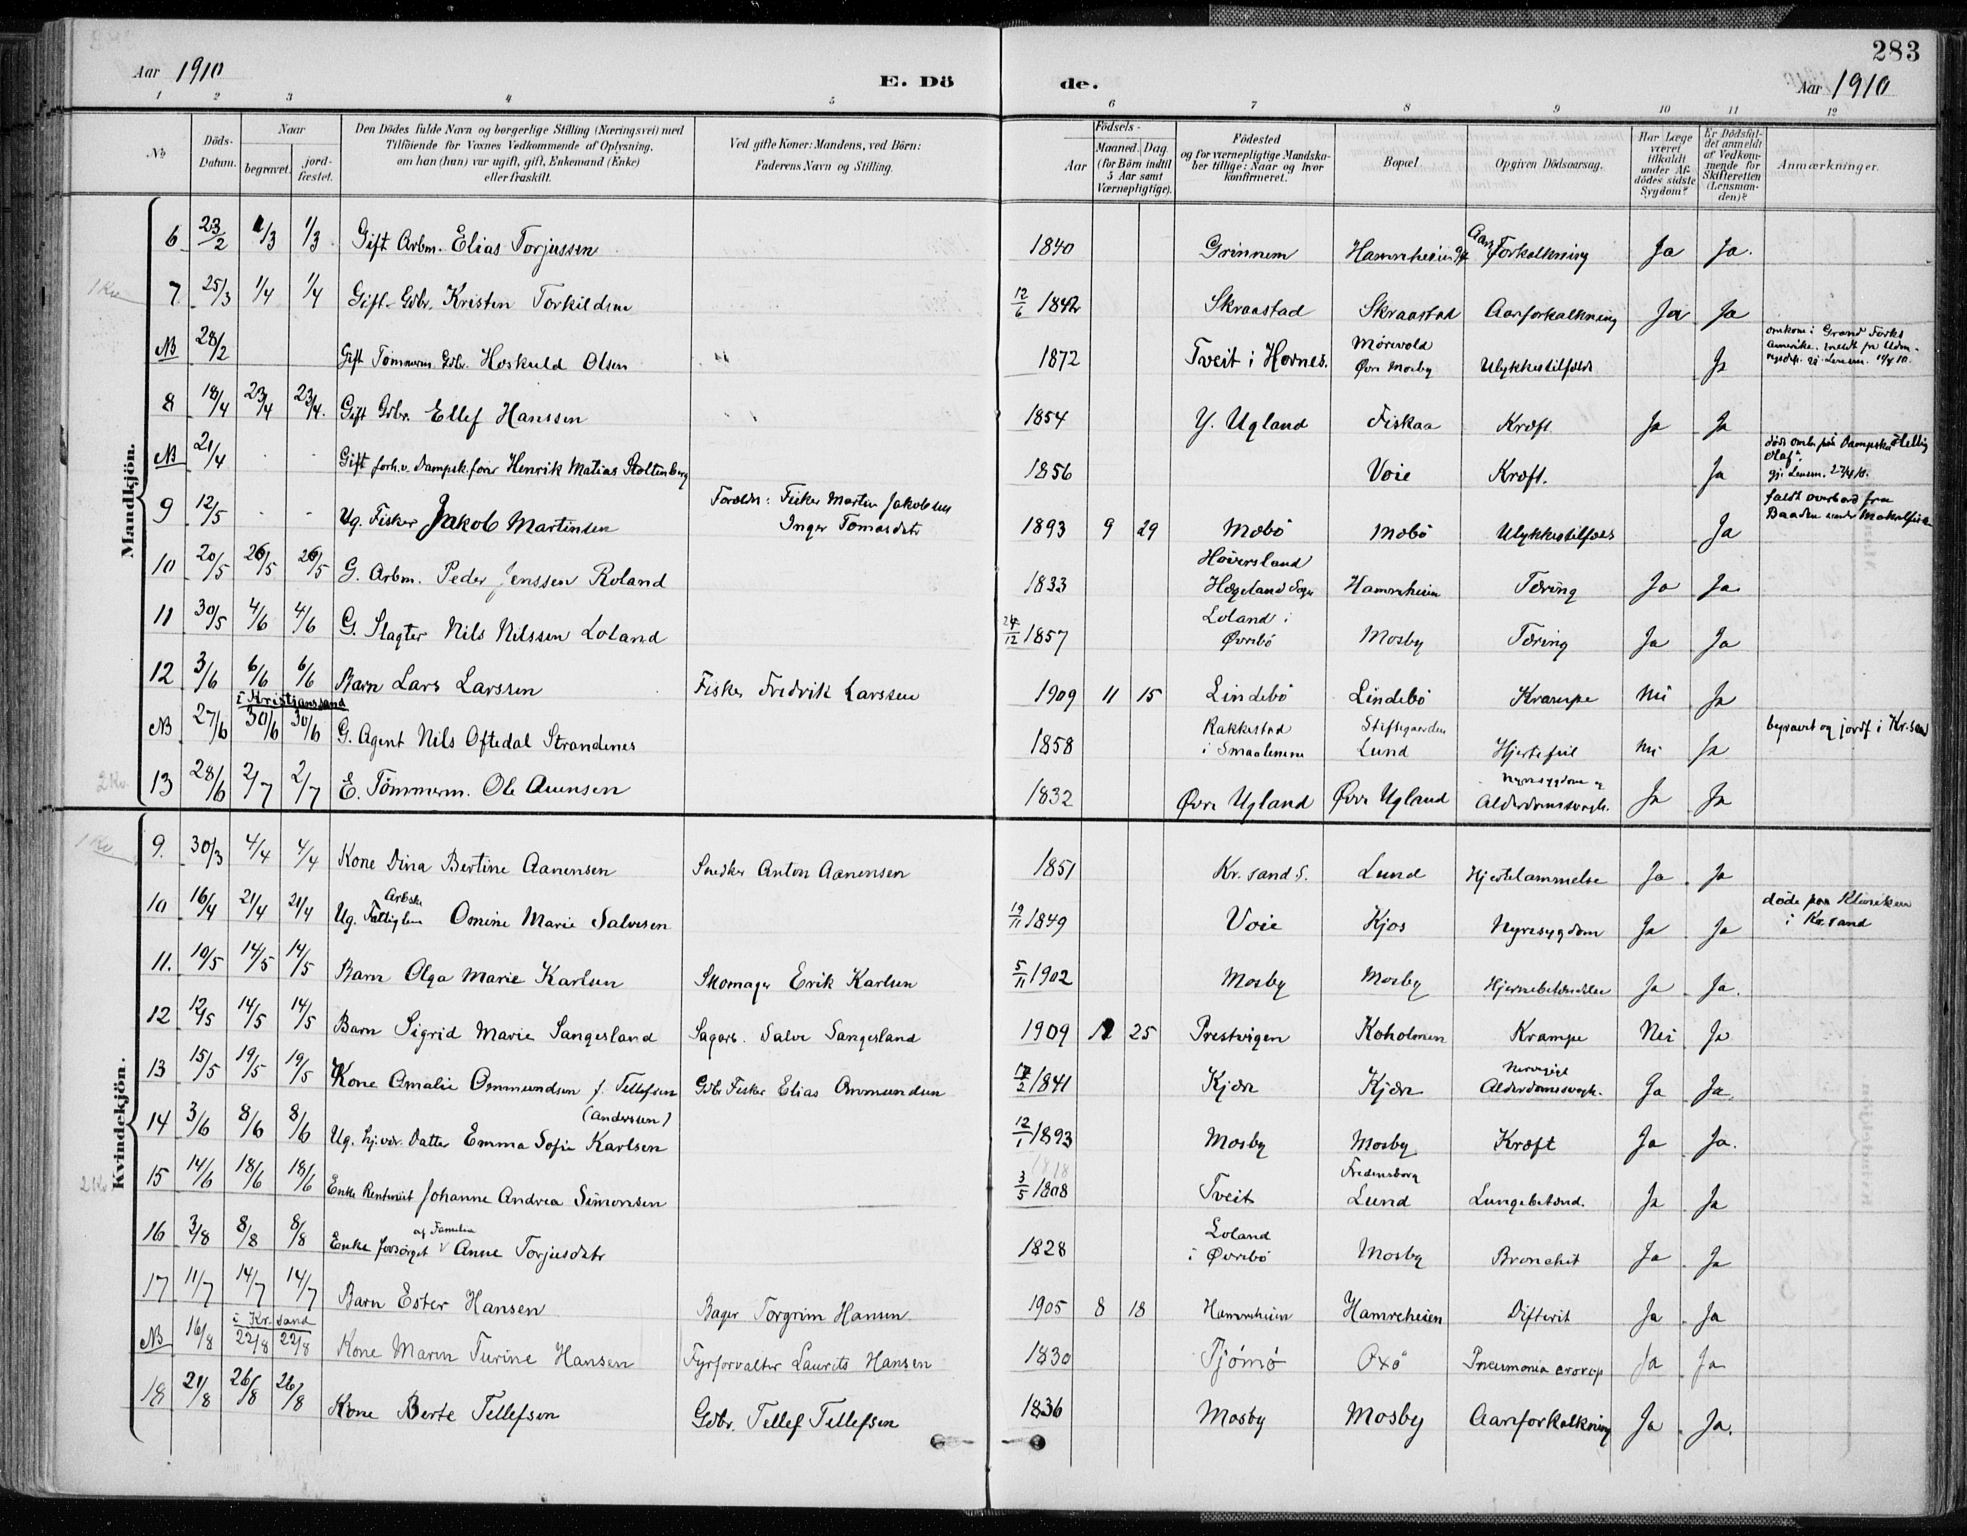 283
Aar 1910
E. Dö
de.
Aar 1910
1 2 3 4 5 6 7 8 9 10 11 12
No
Döds-
Datum.
Naar
begravet.
jord-
fæstet.
Den Dödes fulde Navn og borgerlige Stilling (Næringsvei) med
Tilföiende for Voxnes Vedkommende af Oplysning,
om han (hun) var ugift, gift, Enkemand (Enke)
eller fraskilt.
Ved gifte Koner: Mandens, ved Börn:
Faderens Navn og Stilling.
Födsels-
Aar
Maaned. Dag.
(for Börn indtil
5 Aar samt
Værnepligtige).
Födested
og for værnepligtige Mandska-
ber tillige: Naar og hvor
konfirmeret.
Bopæl.
Opgiven Dödsaarsag.
Har Læge
været
tilkaldt
under Af-
dödes sidste
Sygdom?
Er Dödsfal-
det anmeldt
af Vedkom-
mende for
Skifteretten
(Lensman-
den)?
Anmærkninger.
Mandkjön.
6 23/2 1/3 1/3 Gift Arbm. Elias Torjussen 1840 Grinnem Hamreheien Aareforkalkning Ja Ja.
1 Kv
7 25/3 1/4 1/4 Gift Gdbr. Kristen Torkildsen 12/6 1842 Skraastad Skraastad Aareforkalkning Ja Ja
NB 28/2 Gift Tømmerm. Gdbr. Hoskuld Olsen 1872 Tveit i Hornes. Mørevold Øvre Mosby Ulykkestilfælde Ja
omkom i Grand Forks
Amerika.
8 18/4 23/4 23/4. Gift Gdbr. Ellef Hanssen 1854 Y. Ugland Fiskaa Kræft. Ja Ja
NB 21/4 Gift forh.v. Dampsk.fører Henrik Matias Stoltenberg 1856 Voie Kræft. Ja
døde omb. paa Dampsk. "Hellig
Olaf".
9 12/5 - - Ug. Fisker Jakob Martinsen Foreldr: Fisker Martin Jakobsen
Inger Tomasdtr 1893 9 29 Mæbö Mæbö Ulykkestilfæld Ja
faldt overbord fra
Baaden under Makrelfiske
10 20/5 26/5 26/5 G. Arbm. Peder Jenssen Roland 1833 Höversland
Hægeland Sogn Hamreheien Tæring Ja Ja
11 30/5 4/6 4/6 G. Slagter Nils Nilssen Loland 24/12 1857 Loland i
Øvrebö Mosby Tæring Ja Ja
12 3/6 6/6 6/6 Barn Lars Larssen Fisker Fredrik Larssen 1909 11 15 Lindebö Lindebö Krampe Nei Ja
i Kristianssand
NB 27/6 30/6 30/6 G. Agent Nils Oftedal Strandenes 1858 Rakkestad
i Smaalenene Stiftsgaarden
Lund Hjertefeil Nei Ja
begravet og jordf i Kr.san
2 Kv.
13 28/6 2/7 2/7 E. Tömmerm. Ole Aanensen 1832 Øvre Ugland Øvre Ugland Nyresygdom og
Alderdomssvagh. Ja Ja
Kvindekjön.
1 Kv
9. 30/3 4/4 4/4 Kone Dina Bertine Aanensen Snedker Anton Aanensen 1851 Kr.sand S. Lund Hjertelammelse Ja Ja
10 16/4 21/4 21/4 Ug. Fattiglem Arbske Omine Marie Salvesen 19/11 1849 Voie Kjos Nyresygdom Ja Ja
døde paa Kliniken
i Kr.sand
11. 10/5 14/5 14/5 Barn Olga Marie Karlsen Skomager Erik Karlsen 5/11 1902 Mosby Mosby Hjernebetændelse Ja Ja.
12 12/5 14/5 14/5 Barn Sigrid Marie Sangesland Sagarb. Salve Sangesland 1909 12 25 Prestvigen Koholmen Krampe Nei Ja
13 15/5 19/5 19/5 Kone Amalie Ommundsen f. Tellefsen
(Andersen) Gdbr Fisker Elias Ommundsen 17/2 1841 Kjære Kjære Nervegigt
Alderdomssvagh. Ja Ja.
14 3/6 8/6 8/6 Ug. hj.vær. Datter Emma Sofie Karlsen 12/1 1893 Mosby Mosby Kræft Ja Ja.
2 Kv
15 14/6 18/6 18/6 Enke Rentenist Johanne Andrea Simonsen 3/5 1808 1818 Tveit Fredensborg
Lund Lungebetænd. Ja Ja
16 3/8 8/8 8/8 Enke forsørget af Familie Anne Torjusdtr 1828 Loland
i Øvrebö Mosby Bronchit Ja Ja
17 11/7 14/7 14/7 Barn Ester Hansen Bager Torgrim Hansen. 1905 8 18 Hamreheien Hamreheien Difterit Ja Ja
i Kr.sand
NB 16/8 22/8 22/8 Kone Maren Turine Hansen Fyrforvalter Laurits Hansen 1830 Tjömö Oxö Pneumonia crorop Ja Ja
18 21/8 26/8 26/8 Kone Berte Tellefsen Gdbr. Tellef Tellefsen 1836 Mosby Mosby Aareforkalkning Ja Ja.